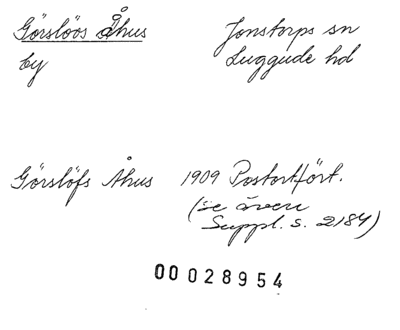 Görslöös Åhus
by
Jonstorps sn
Luggude hd
Görslöfs Åhus 1909 Postortfört.
(se även
Suppl. s. 2184)
00028954